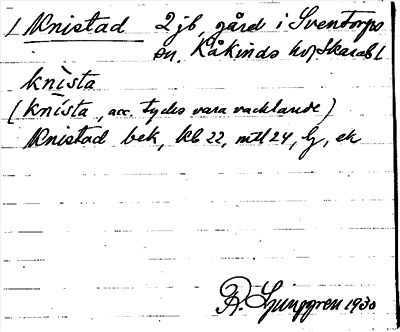 / Knistad 2 jb, gård i Sventorps
sn, Kåkinds hd, Skarab. l
knìsta
(knísta, acc. tydes vara vacklande)
Knistad bek, kb 22, mtl 24, lj, ek
R. Ljunggren 1930